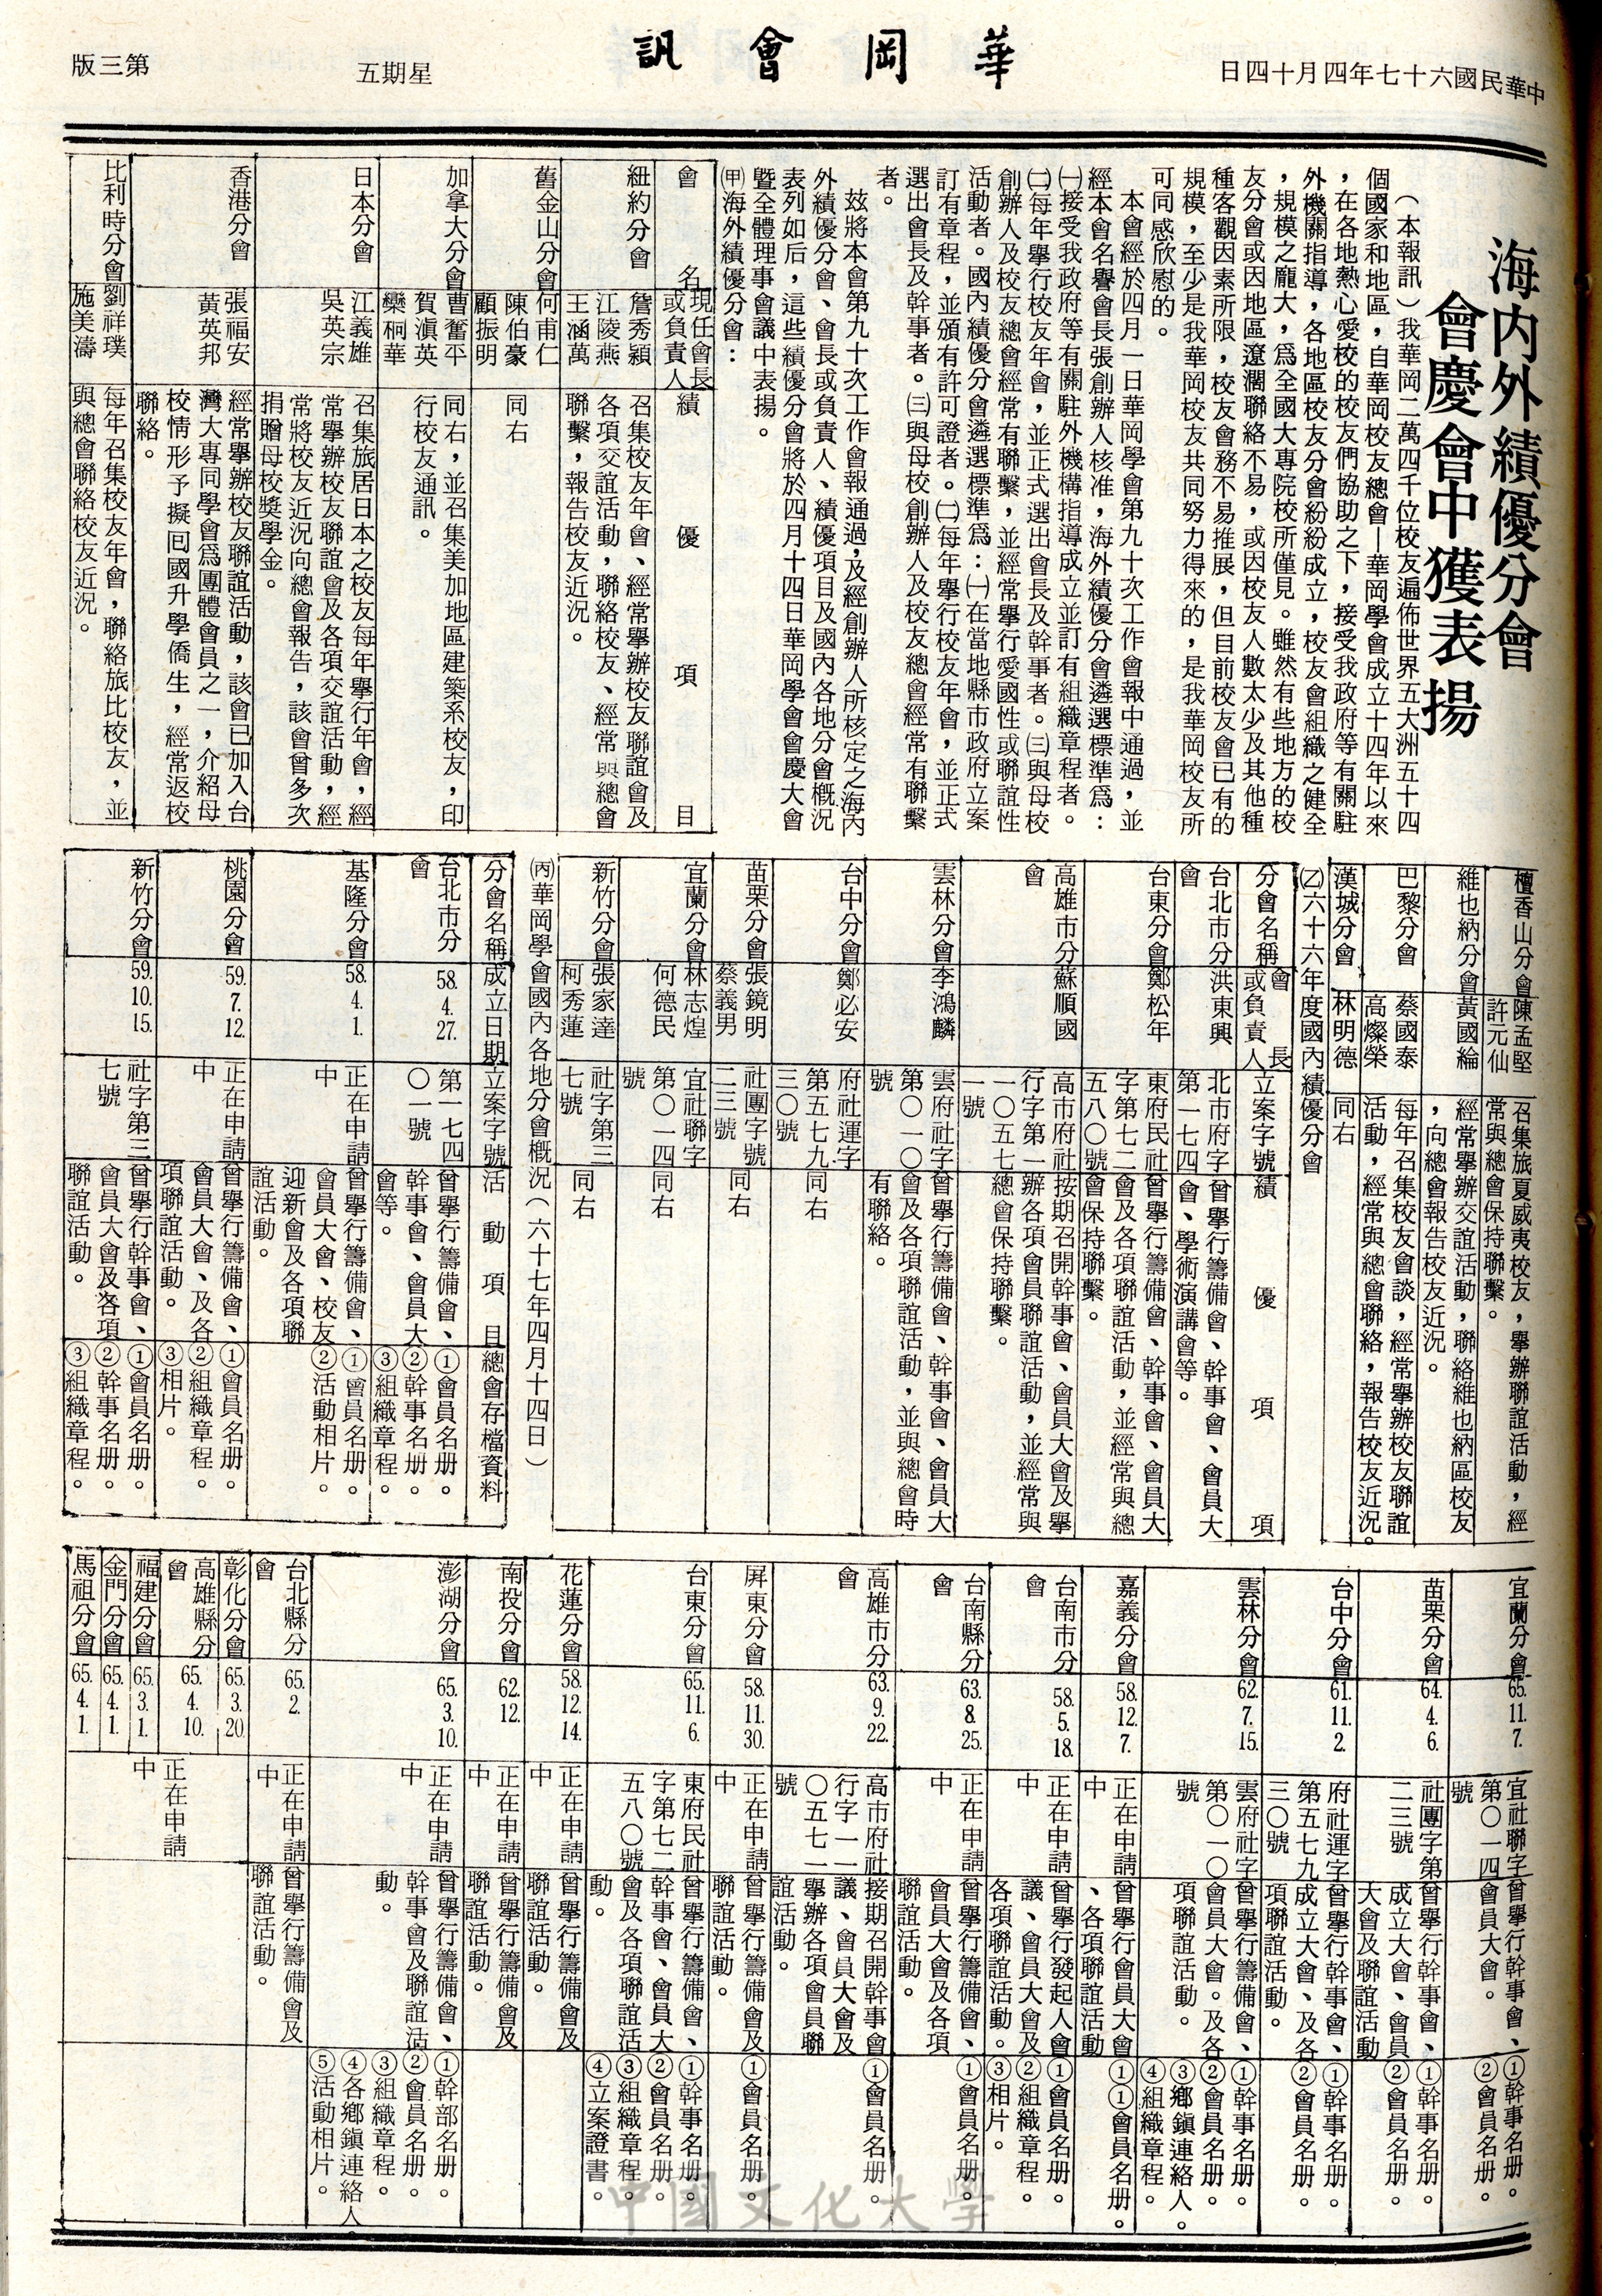 中華民國六十七年四月十四日
華岡會訊
星期五
第三版
海內外績優分會
會慶會中獲表揚
（本報訊）我華岡二萬四千位校友遍佈世界五大洲五十四
個國家和地區，自華岡校友總會—華岡學會成立十四年以來
，在各地熱心愛校的校友們協助之下，接受我政府等有關駐
外機關指導，各地區校友分會紛紛成立，校友會組織之健全
，規模之龐大，為全國大專院校所僅見。雖然有些地方的校
友分會或因地區遼濶聯絡不易，或因校友人數太少及其他種
種客觀因素所限，校友會務不易推展，但目前校友會已有的
規模，至少是我華岡校友共同努力得來的，是我華岡校友所
可同感欣慰的。
本會經於四月一日華岡學會第九十次工作會報中通過，並
經本會名譽會長張創辦人核准，海外績優分會遴選標準為：
㈠接受我政府等有關駐外機構指導成立並訂有組織章程者。
㈡每年舉行校友年會，並正式選出會長及幹事者。㈢與母校
創辦人及校友總會經常有聯繫，並經常舉行愛國性或聯誼性
活動者。國內績優分會遴選標準為：㈠在當地縣市政府立案
訂有章程，並頒有許可證者。㈡每年舉行校友年會，並正式
選出會長及幹事者。㈢與母校創辦人及校友總會經常有聯繫
者。
茲將本會第九十次工作會報通過，及經創辦人所核定之海內
外績優分會、會長或負責人、績優項目及國內各地分會概況
表列如后，這些績優分會將於四月十四日華岡學會會慶大會
暨全體理事會議中表揚。
㈙海外績優分會：
會名
現任會長
或負責人
績優項目
紐約分會
詹秀穎
江陵燕
王涵萬
召集校友年會、經常舉辦校友聯誼會及
各項交誼活動，聯絡校友、經常與總會
聯繫，報告校友近況。
舊金山分會
何甫仁
陳伯豪
顧振明
同右
加拿大分會
曹奮平
賀滇英
欒桐華
同右，並召集美加地區建築系校友，印
行校友通訊。
日本分會
江義雄
吳英宗
召集旅居日本之校友每年舉行年會，經
常舉辦校友聯誼會及各項交誼活動，經
常將校友近況向總會報告，該會曾多次
捐贈母校獎學金。
香港分會
張福安
黃英邦
經常舉辦校友聯誼活動，該會已加入台
灣大專同學會為團體會員之一，介紹母
校情形予擬回國升學僑生，經常返校
聯絡。
比利時分會
劉祥璞
施美濤
每年召集校友年會，聯絡旅比校友，並
與總會聯絡校友近況。
檀香山分會
陳孟堅
許元仙
召集旅夏威夷校友，舉辦聯誼活動，經
常與總會保持聯繫。
維也納分會
黃國綸
經常舉辦交誼活動，聯絡維也納區校友
，向總會報告校友近況。
巴黎分會
蔡國泰
高燦榮
每年召集校友會談，經常舉辦校友聯誼
活動，經常與總會聯絡，報告校友近況。
漢城分會
林明德
同右
㈚六十六年度國內績優分會
分會名稱
會長
或負責人
立案字號
績優項項
台北市分
會
洪東興
北市府字
第一七四
曾舉行籌備會、幹事會、會員大
會、學術演講會等。
台東分會
鄭松年
東府民社
字第七二
五八〇號
曾舉行籌備會、幹事會、會員大
會及各項聯誼活動，並經常與總
會保持聯繫。
高雄市分
會
蘇順國
高市府社
行字第一
一〇五七
一號
按期召開幹事會、會員大會及舉
辦各項會員聯誼活動，並經常與
總會保持聯繫。
雲林分會
李鴻麟
雲府社字
第〇一〇
號
曾舉行籌備會、幹事會、會員大
會及各項聯誼活動，並與總會時
有聯絡。
台中分會
鄭必安
府社運字
第五七九
三〇號
同右
苗栗分會
張鏡明
蔡義男
社團字號
二三號
同右
宜蘭分會
林志煌
何德民
宜社聯字
第〇一四
號
同右
新竹分會
張家達
柯秀蓮
社字第三
七號
同右
㈛華岡學會國內各地分會概況（六十七年四月十四日）
分會名稱
成立日期
立案字號
活動項目
總會存檔資料
台北市分
會
58.4.27.
第一七四
〇一號
曾舉行籌備會、
幹事會、會員大
會等。
①會員名册。
②幹事名册。
③組織章程。
基隆分會
58.4.1.
正在申請
中
曾舉行籌備會、
會員大會、校友
迎新會及各項聯
誼活動。
①會員名册。
②活動相片。
桃園分會
59.7.12.
正在申請
中
曾舉行籌備會、
會員大會、及各
項聯誼活動。
①會員名册。
②組織章程。
③相片。
新竹分會
59.10.15.
社字第三
七號
曾舉行幹事會、
會員大會及各項
聯誼活動。
①會員名册。
②幹事名册。
③組織章程。
宜蘭分會
65.11.7.
宜社聯字
第〇一四
號
曾舉行幹事會、
會員大會。
①幹事名册。
②會員名册。
苗栗分會
64.4.6.
社團字第
二三號
曾舉行幹事會、
成立大會、會員
大會及聯誼活動
①幹事名册。
②會員名册。
台中分會
61.11.2.
府社運字
第五七九
三〇號
曾舉行幹事會、
成立大會、及各
項聯誼活動。
①幹事名册。
②會員名册。
雲林分會
62.7.15.
雲府社字
第〇一〇
號
曾舉行籌備會、
會員大會。及各
項聯誼活動。
①幹事名册。
②會員名册。
③鄉鎮連絡人。
④組織章程。
嘉義分會
58.12.7.
正在申請
中
曾舉行會員大會
、各項聯誼活動
①①會員名册。
台南市分
會
58.5.18.
正在申請
中
曾舉行發起人會
議、會員大會及
各項聯誼活動。
①會員名册。
②組織章程。
③相片。
台南縣分
會
63.8.25.
正在申請
中
曾舉行籌備會、
會員大會及各項
聯誼活動。
①會員名册。
高雄市分
會
63.9.22.
高市府社
行字一一
〇五七一
號
接期召開幹事會
議、會員大會及
舉辦各項會員聯
誼活動。
①會員名册。
屏東分會
58.11.30.
正在申請
中
曾舉行籌備會及
聯誼活動。
①會員名册。
台東分會
65.11.6.
東府民社
字第七二
五八〇號
曾舉行籌備會、
幹事會、會員大
會及各項聯誼活
動。
①幹事名册。
②會員名册。
③組織章程。
④立案證書。
花蓮分會
58.12.14.
正在申請
中
曾舉行籌備會及
聯誼活動。
南投分會
62.12.
正在申請
中
曾舉行籌備會及
聯誼活動。
澎湖分會
65.3.10.
正在申請
中
曾舉行籌備會、
幹事會及聯誼活
動。
①幹部名册。
②會員名册。
③組織章程。
④各鄉鎮連絡人。
⑤活動相片。
台北縣分
會
65.2.
正在申請
中
曾舉行籌備會及
聯誼活動。
彰化分會
65.3.20.
高雄縣分
會
65.4.10.
福建分會
65.3.1.
金門分會
65.4.1.
馬祖分會
65.4.1.
正在申請
中
中國文化大學